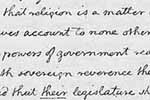 that religion is a matter
ves account to none othe
powers of government rea
th sovereign reverence the
d that their legislature sh